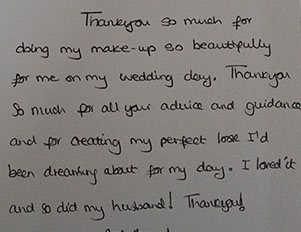 Thankyou so much for
doing my make-up so beautifully
for me on my wedding day. Thankyou
So much for all your advice and guidance
and for creating my perfect look I'd
been dreaming about for my day. I loved it
and so did my husband! Thankyou!